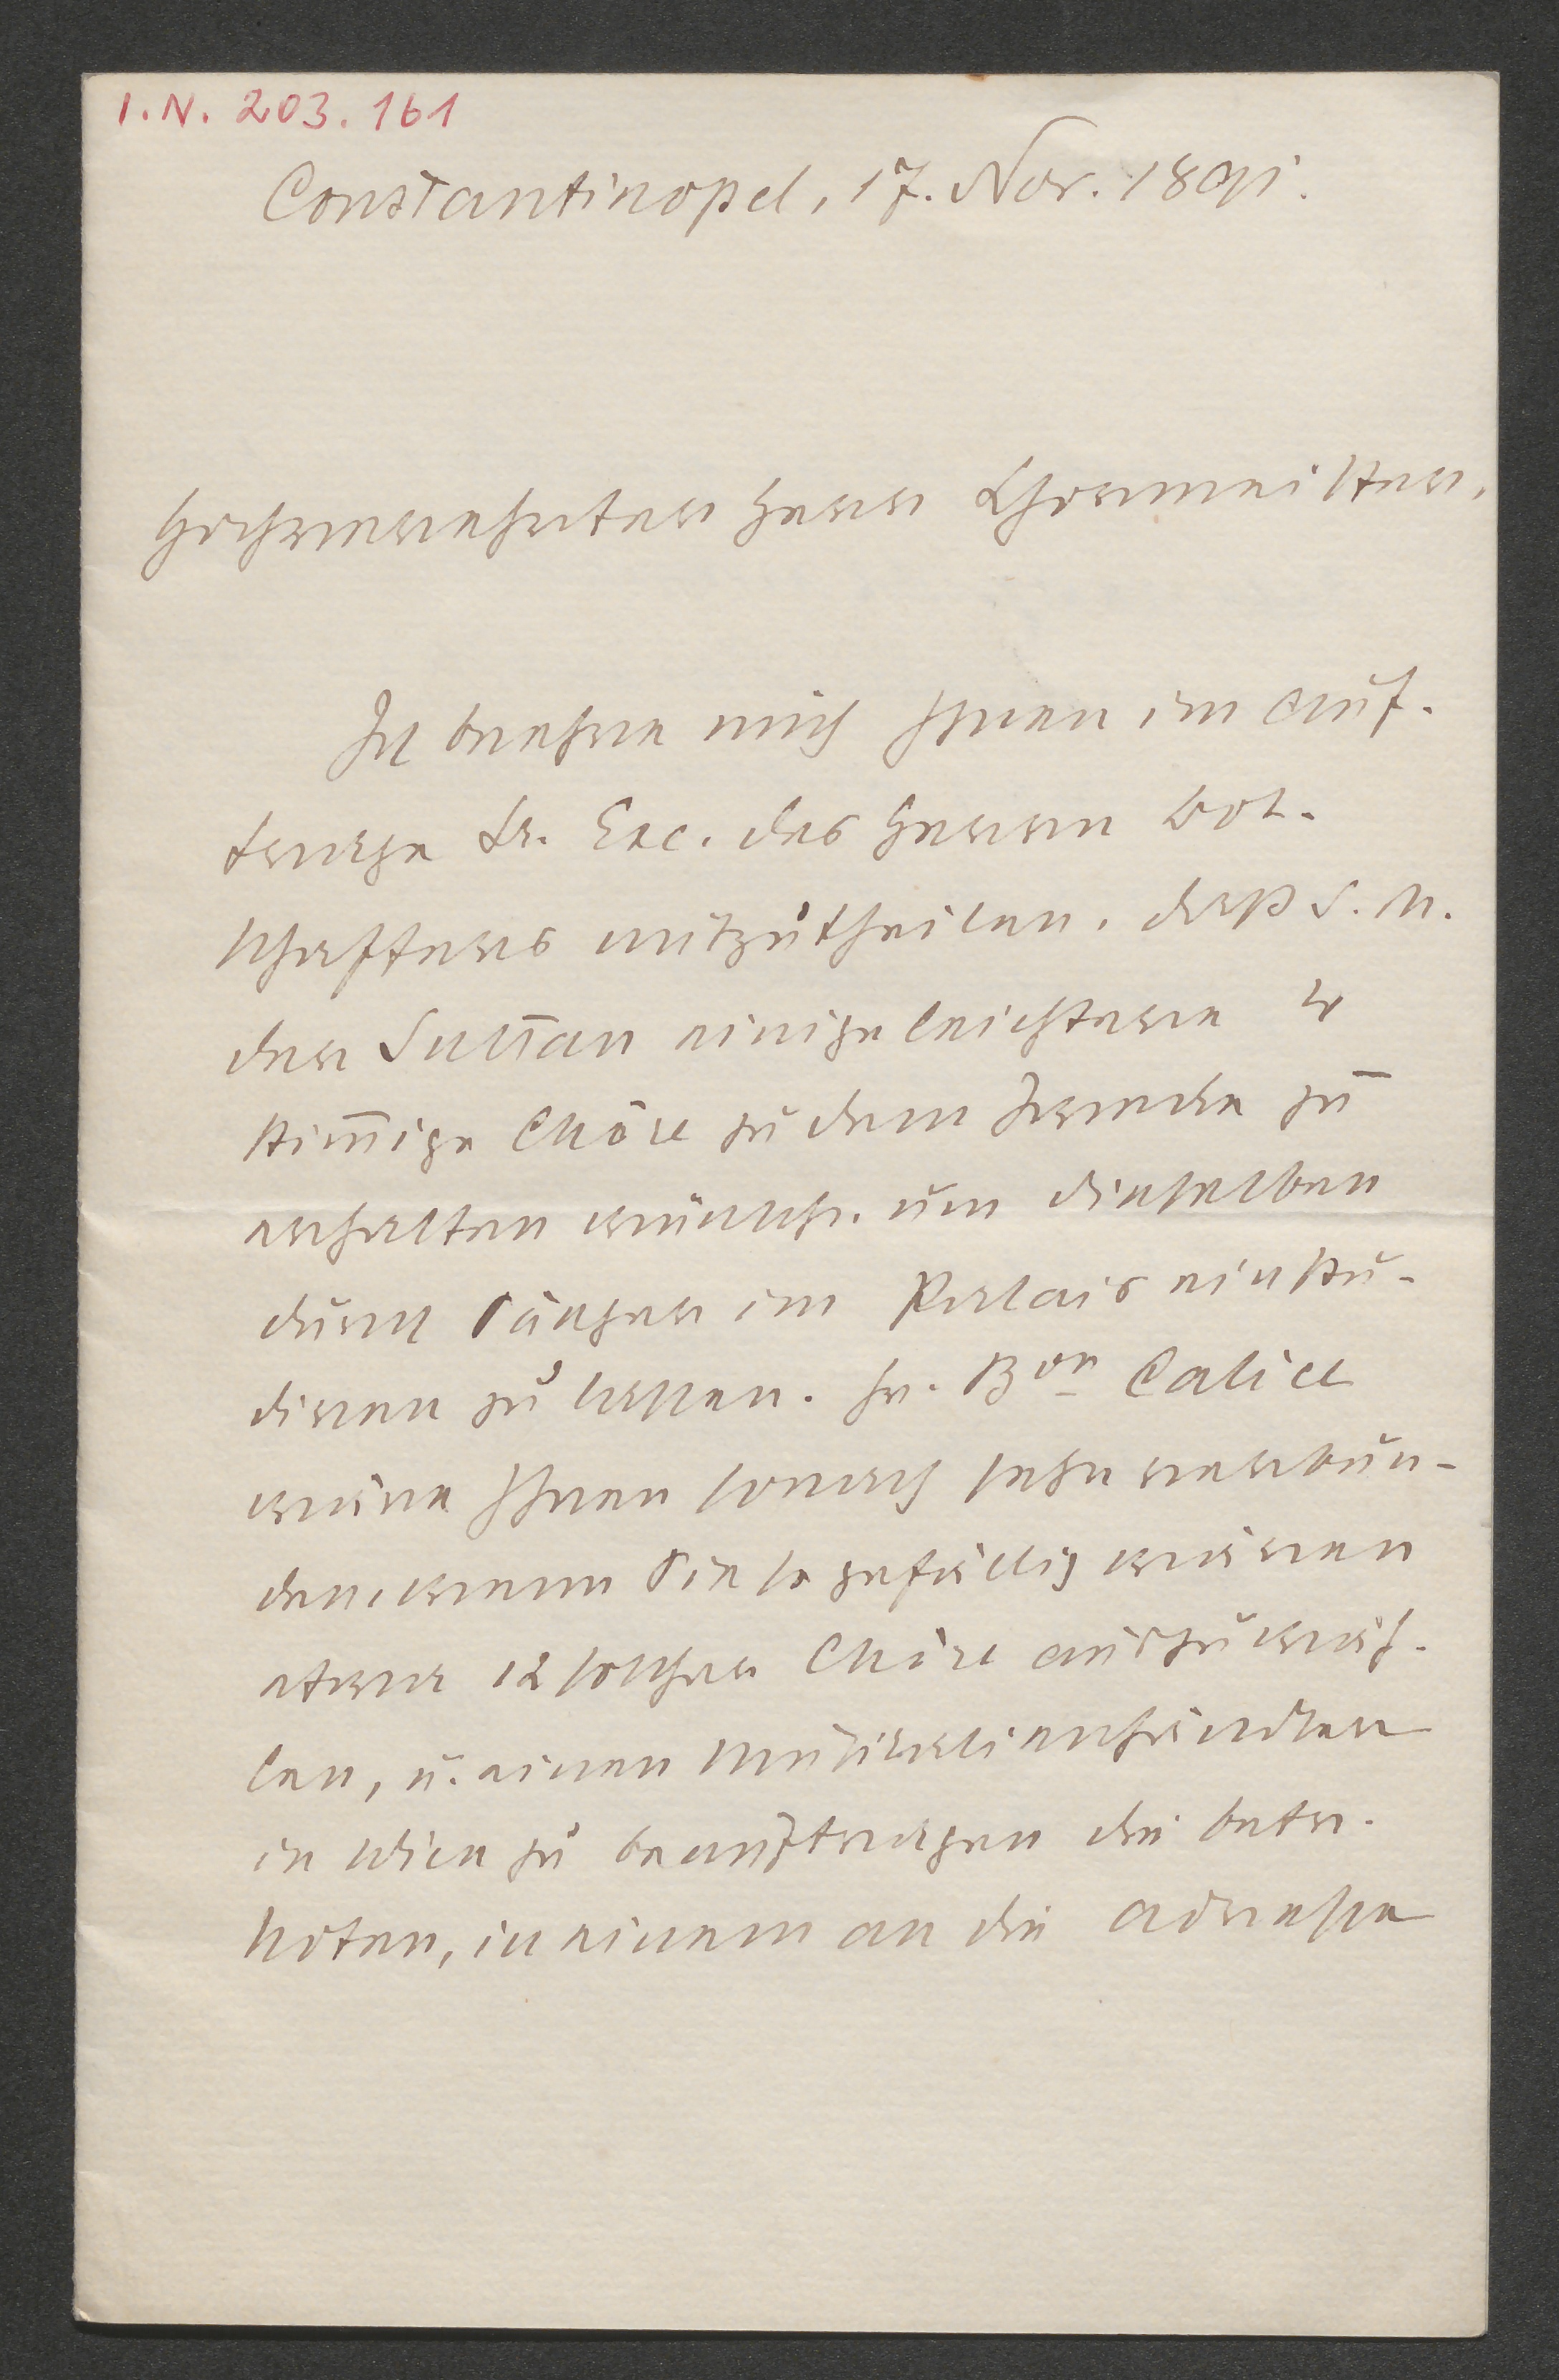 I.N. 203.161
Constantinopel, 17. Nov. 1891.
Hochverehrter Herr Chormeister,
Ich beehre mich Ihnen im Auf-
trage Sr. Exc. des Herrn Bot-
schafters mitzutheilen, daß S. M.
der Sultan einige leichtere 4
stim̅ige Chöre zu dem Zwecke zu
erhalten wünsche, um dieselben
durch Sänger im Palais einstu-
diren zu lassen. Hr. Bon Calice
wäre Ihnen sonach sehr verbun-
den, wenn Sie so gefällig wären
etwa 12 solcher Chöre auszuwäh-
len, u. einen Musikalienhändler
in Wien zu beauftragen die betr.
Noten, in einem an die Adresse